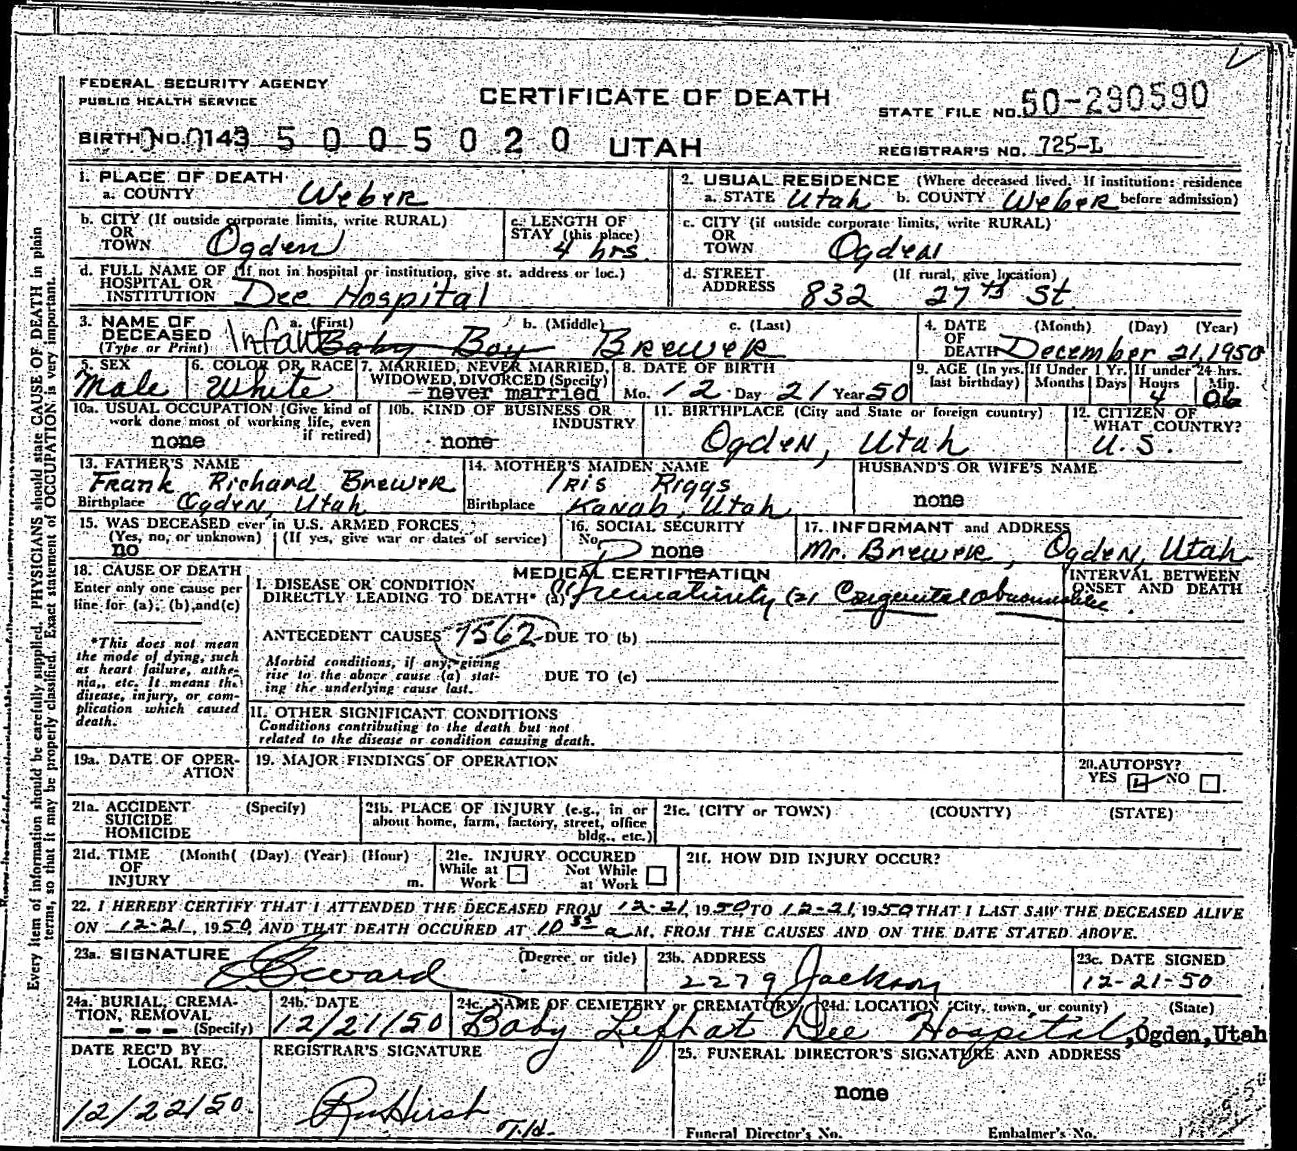 FEDERAL SECURITY AGENCY
PUBLIC HEALTH SERVICE
CERTIFICATE OF DEATH
STATE FILE NO. 50-290590
BIRTH NO. 0143 5 0 0 5 0 2 0 UTAH
REGISTRAR'S NO. 725-L
1. PLACE OF DEATH
a. COUNTY Weber
2. USUAL RESIDENCE (Where deceased lived. If institution: residence
a. STATE Utah b. COUNTY Weber before admission)
b. CITY (If outside corporate limits, write RURAL)
OR
TOWN Ogden
c. LENGTH OF
STAY (this place)
4 hrs.
c. CITY (if outside corporate limits, write RURAL)
OR
TOWN Ogden
d. FULL NAME OF (If not in hospital or institution, give st. address or loc.)
HOSPITAL OR
INSTITUTION Dee Hospital
d. STREET (If rural, give location)
ADDRESS 832 27th St
3. NAME OF a. (First) b. (Middle) c. (Last)
DECEASED
(Type or Print) Infant Baby Boy Brewer
4. DATE (Month) (Day) (Year)
OF
DEATH December 21, 1950
5. SEX
Male
6. COLOR OR RACE
White
7. MARRIED, NEVER MARRIED,
WIDOWED, DIVORCED (Specify)
never married
8. DATE OF BIRTH
Mo. 12 Day 21 Year 50
9. AGE (In yrs. If Under 1 Yr. If under 24 hrs.
last birthday) Months Days Hours Min.
4 06
10a. USUAL OCCUPATION (Give kind of
work done most of working life, even
if retired)
none
10b. KIND OF BUSINESS OR
INDUSTRY
none
11. BIRTHPLACE (City and State or foreign country)
Ogden, Utah
12. CITIZEN OF
WHAT COUNTRY?
U.S.
13. FATHER'S NAME
Frank Richard Brewer
Birthplace Ogden, Utah
14. MOTHER'S MAIDEN NAME
Iris Riggs
Birthplace Kanab, Utah
HUSBAND'S OR WIFE'S NAME
none
15. WAS DECEASED ever in U.S. ARMED FORCES
(Yes, no, or unknown) (If yes, give war or dates of service)
no
16. SOCIAL SECURITY
No. none
17. INFORMANT and ADDRESS
Mr. Brewer, Ogden, Utah
18. CAUSE OF DEATH
Enter only one cause per
line for (a), (b), and (c)
*This does not mean
the mode of dying, such
as heart failure, asthe-
nia, etc. It means the
disease, injury, or com-
plication which caused
death.
MEDICAL CERTIFICATION
INTERVAL BETWEEN
ONSET AND DEATH
I. DISEASE OR CONDITION
DIRECTLY LEADING TO DEATH* (a) (1) Prematurity (2) Congenital
ANTECEDENT CAUSES 7562 DUE TO (b)
Morbid conditions, if any, giving
rise to the above cause (a) stat-
ing the underlying cause last.
DUE TO (c)
II. OTHER SIGNIFICANT CONDITIONS
Conditions contributing to the death but not
related to the disease or condition causing death.
19a. DATE OF OPER-
ATION
19. MAJOR FINDINGS OF OPERATION
20. AUTOPSY?
YES NO
21a. ACCIDENT (Specify)
SUICIDE
HOMICIDE
21b. PLACE OF INJURY (e.g., in or
about home, farm, factory, street, office
bldg., etc.)
21c. (CITY or TOWN) (COUNTY) (STATE)
21d. TIME (Month( (Day) (Year) (Hour)
OF
INJURY m.
21e. INJURY OCCURED
While at Not While
Work at Work
21f. HOW DID INJURY OCCUR?
22. I HEREBY CERTIFY THAT I ATTENDED THE DECEASED FROM 12-21, 1950, TO 12-21, 1950 THAT I LAST SAW THE DECEASED ALIVE
ON 12-21, 1950 AND THAT DEATH OCCURED AT 10 35 a M. FROM THE CAUSES AND ON THE DATE STATED ABOVE.
23a. SIGNATURE (Degree or title)
23b. ADDRESS
2279 Jackson
23c. DATE SIGNED
12-21-50
24a. BURIAL, CREMA-
TION, REMOVAL
- - - (Specify)
24b. DATE
12/21/50
24c. NAME OF CEMETERY or CREMATORY 24d. LOCATION (City, town, or county) (State)
Baby Left at Dee Hospital, Ogden, Utah
DATE REC'D BY
LOCAL REG.
12/22/50
REGISTRAR'S SIGNATURE
25. FUNERAL DIRECTOR'S SIGNATURE AND ADDRESS
none
Funeral Director's No. Embalmer's No.
Every item of information should be carefully supplied. PHYSICIANS should state CAUSE OF DEATH in plain
terms, so that it may be properly classified. Exact statement of OCCUPATION is very important.